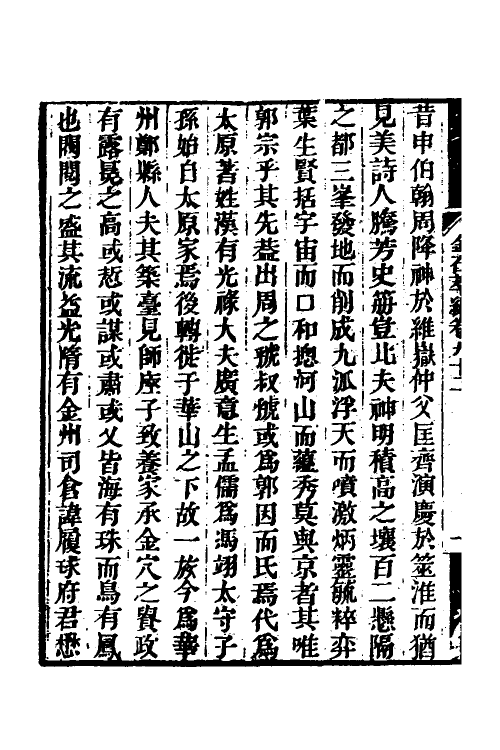 昔申伯翰周降神於維嶽仲父匡齊演慶於筮淮而猶
見美詩人騰芳史冊豈比夫神明積高之壤百二懸隔
之都三峯發地而削成九派浮天而噴激炳靈毓粹弈
葉生賢括宇宙而口和摠河山而蘊秀莫與京者其唯
郭宗乎其先葢出周之虢叔虢或為郭因而氏焉代為
太原著姓漢有光祿大夫廣意生孟儒為馮翊太守子
孫始自太原家焉後轉徙于華山之下故一族今為華
州鄭縣人夫其築臺見師座子致養家承金穴之貴政
有露冕之高或悊或謀或肅或乂皆海有珠而鳥有鳳
也閥閱之盛其流益光隋有金州司倉諱履球府君懋
金石萃編卷九十二